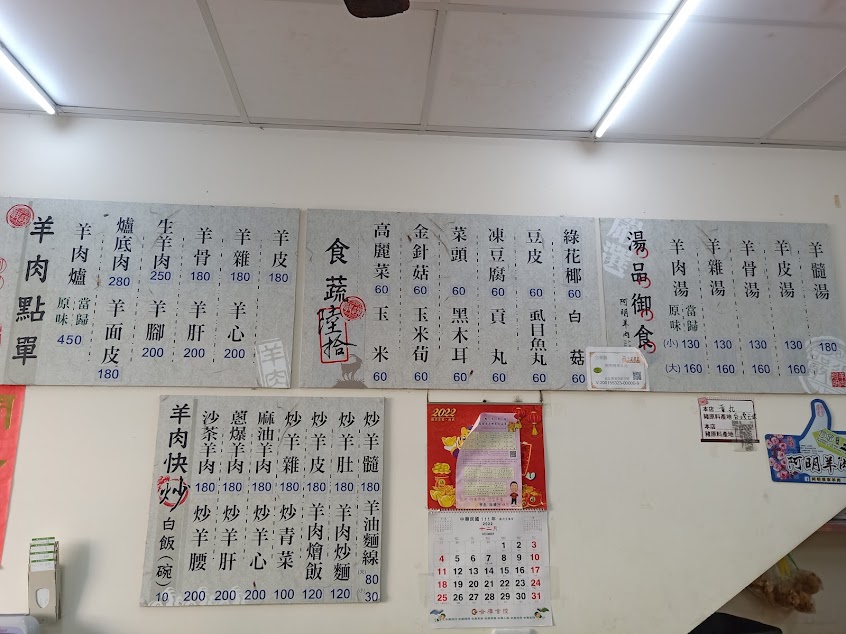 羊肉點單
羊肉爐
原味 當歸
450
爐底肉
280
羊面皮
180
生羊肉
250
羊腳
200
羊骨
180
羊肝
200
羊雜
180
羊心
200
羊皮
180
羊肉
食蔬
陸拾
高麗菜
60
玉米
60
金針菇
60
玉米荀
60
菜頭
60
黑木耳
60
凍豆腐
60
貢丸
60
豆皮
60
虱目魚丸
60
綠花椰
60
白菇
60
湯品御食
羊肉湯
原味 當歸
(小) 130
(大) 160
羊雜湯
130
160
羊骨湯
130
160
羊皮湯
130
160
羊髓湯
180
羊肉快炒
白飯(碗)
10
沙茶羊肉
180
炒羊腰
200
蔥爆羊肉
180
炒羊肝
200
麻油羊肉
180
炒羊心
200
炒羊雜
180
炒青菜
100
炒羊皮
180
羊肉燴飯
120
炒羊肚
180
羊肉炒麵
120
炒羊髓
180
羊油麵線
80
30
2022
中華民國111年
2022
十二月
1 2 3
4 5 6 7 8 9 10
11 12 13 14 15 16 17
18 19 20 21 22 23 24
25 26 27 28 29 30 31
本店
豬原料產地
本店
豬原料產地
阿明羊肉